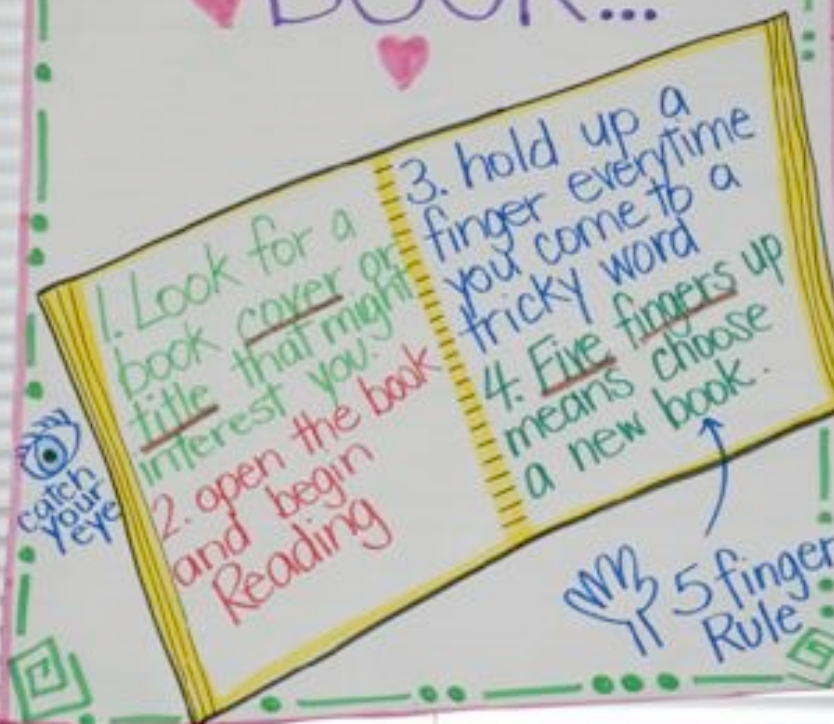 BOOK...
1. Look for a
book cover or
title that might
interest you.
2. open the book
and begin
Reading
3. hold up a
finger everytime
you come to a
tricky word
4. Five fingers up
means choose
a new book.
catch
your
eye
5 finger
Rule